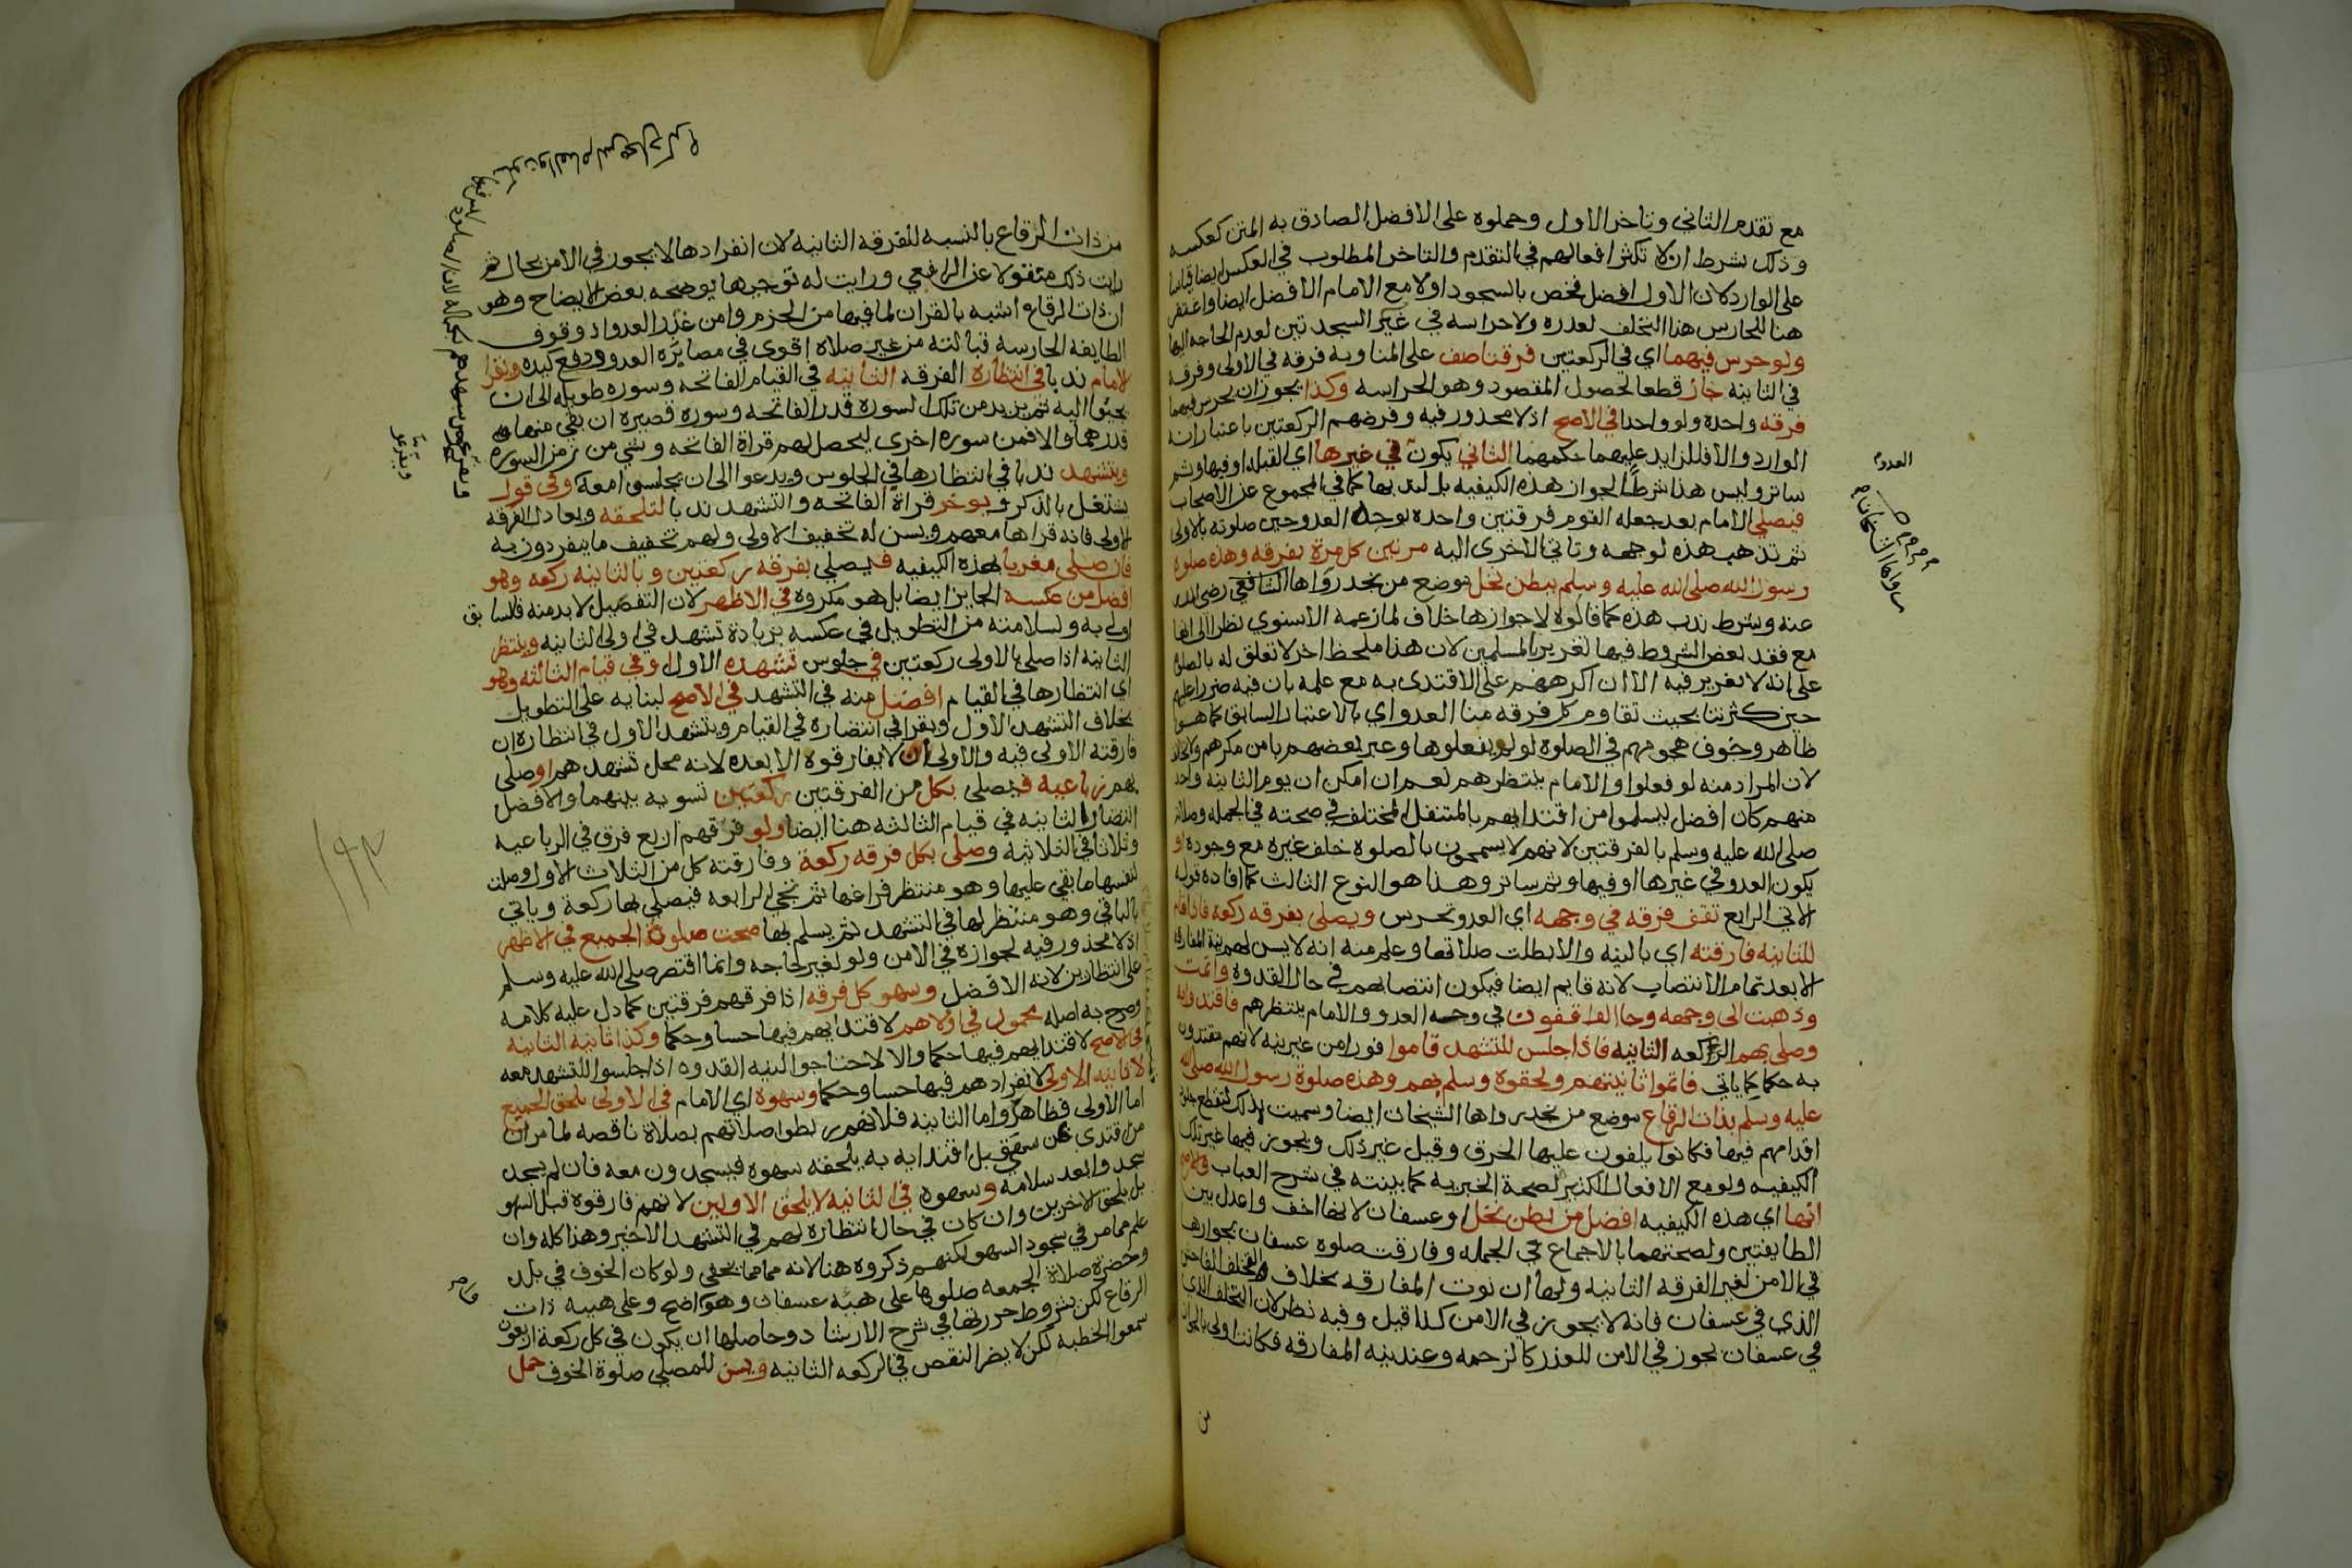 مع تقدم الثاني وتاخر الاول وحملوه على الافضل الصادق به المتن كعكسه
وذلك بشرط ان لا تكثر افعالهم في التقدم والتاخر المطلوب في العكس ايضا قياسا
على الوارد لان الاول افضل فخص بالسجود اولا مع الامام الافضل ايضا واغتفر
هنا للحارس هذا التخلف لعذره ولا حراسه في غير السجدتين لعدم الحاجه اليها
ولو حرس فيهما اي في الركعتين فرقتا صف على المناوبه فرقه في الاولى وفرقه
في الثانيه جاز قطعا لحصول المقصود وهو الحراسه وكذا يجوز ان يحرس فيهما
فرقه واحده ولو واحدا في الاصح اذ لا محذور فيه وفرضهم الركعتين باعتبار انه
الوارد والا فللزايد عليهما حكمهما الثاني يكون في غيرها اي القبله او فيها وثم
ساتر وليس هذا شرطا لجواز هذه الكيفيه بل لندبها كما في المجموع عن الاصحاب
فيصلي الامام بعد جعله القوم فرقتين واحده بوجه العدو حين صلوته بالاولى
ثم تذهب هذه لوجهه وتاتي الاخرى اليه مرتين كل مرة بفرقه وهذه صلوة
رسول الله صلى الله عليه وسلم ببطن نخل موضع من نجد رواها الشافعي رضي الله
عنه وشرط ندب هذه كما قالوه لا جوازها خلاف لما زعمه الاسنوي نظرا الى انها
مع فقد بعض الشروط فيها تغرير بالمسلمين لان هذا ملحظ اخر لا تعلق له بالصلوة
على انه لا تغرير فيه الا ان اكرههم على الاقتدى به مع علمه بان فيه ضررا عليهم
حين كثرتنا بحيث تقاوم كل فرقه منا العدو اي بالاعتبار السابق كما هو
ظاهر وخوف هجومهم في الصلوة لو لم يفعلوها وعبر بعضهم بامن مكرهم ولا تخالف
لان المراد منه لو فعلوا والامام ينتظرهم نعم ان امكن ان يوم الثانيه واحد
منهم كان افضل ليسلموا من اقتدايهم بالمتنفل المختلف في صحته في الجمله وصلاته
صلى الله عليه وسلم بالفرقتين لانهم لا يسمحون بالصلوة خلف غيره مع وجوده او
يكون العدو في غيرها او فيها وثم ساتر وهذا هو النوع الثالث كما افاده قوله
الاتي الرابع تقف فرقه في وجهه اي العدو تحرس ويصلي بفرقه ركعه فاذا قام
للثانيه فارقته اي بالنيه والا بطلت صلاتها وعلم منه انه لا يسن لهم نية المفارقه
الا بعد تمام الانتصاب لانه قايم ايضا فيكون انتصابهم في حال القدوه واتمت
وذهبت الى وجهه وجا الواقفون في وجه العدو والامام ينتظرهم فاقتدوا به
وصلى بهم الركعه الثانيه فاذا جلس للتشهد قاموا فورا من غير نيه لانهم مقتدون
به حكما كما ياتي فاتموا ثانيتهم ولحقوه وسلم بهم وهذه صلوة رسول الله صلى الله
عليه وسلم بذات الرقاع موضع من نجد رواها الشيخان ايضا وسميت بذلك لتقطع جلد
اقدامهم فيها فكانوا يلفون عليها الخرق وقيل غير ذلك ويجوز فيها غير تلك
الكيفيه ولو مع الافعال الكثيره لصحة الخبر به كما بينته في شرح العباب والاصح
انها اي هذه الكيفيه افضل من بطن نخل او عسفان لانها اخف واعدل بين
الطايفتين ولصحتهما بالاجماع في الجمله وفارقت صلوة عسفان بجوازها
في الامن لغير الفرقه الثانيه ولها ان نوت المفارقه بخلاف التخلف الفاحش
الذي في عسفان فانه لا يجوز في الامن كذا قيل وفيه نظر لان التخلف الذي
في عسفان يجوز في الامن للعذر كالزحمه وعند نيه المفارقه فكانتا اولى بالجواز
من
العدو
رواها الشيخان
من ذات الرقاع بالنسبه للفرقه الثانيه لان انفرادها لا يجوز في الامن بحال ثم
رايت ذلك منقولا عن الرافعي ورايت له توجيها يوضحه بعض الايضاح وهو
ان ذات الرقاع اشبه بالقران لما فيها من الحزم وامن غدر العدو اذ وقوف
الطايفه الحارسه قبالته من غير صلاه اقوى في مصابره العدو ودفع كيده ويقرا
الامام ندبا في انتظاره الفرقه الثانيه في القيام الفاتحه وسوره طويله الى ان
يجيوا اليه ثم يزيد من تلك السوره قدر الفاتحه وسوره قصيره ان بقي منها
قدرهما والا فمن سوره اخرى ليحصل لهم قراة الفاتحه وشي من زمن السوره
ويتشهد ندبا في انتظارها في الجلوس ويدعوا الى ان يجلسوا معه وفي قول
يشتغل بالذكر ويوخر قراة الفاتحه والتشهد ندبا لتلحقه ويعادل الفرقه
الاولى فانه قراها معهم ويسن له تخفيف الاولى ولهم تخفيف ما ينفردون به
فان صلى مغربا بهذه الكيفيه فيصلي بفرقه ركعتين وبالثانيه ركعه وهو
افضل من عكسه الجايز ايضا بل هو مكروه في الاظهر لان التفضيل لا بد منه فالسابق
اولى به ولسلامته من التطويل في عكسه بزيادة تشهد في اولى الثانيه وينتظر
الثانيه اذا صلى بالاولى ركعتين في جلوس تشهده الاول او في قيام الثالثه وهو
اي انتظارها في القيام افضل منه في التشهد في الاصح لبنايه على التطويل
بخلاف التشهد الاول ويقرا في انتضاره في القيام ويتشهد الاول في انتظاره ان
فارقته الاولى فيه والاولى ان لا يفارقوه الا بعده لانه محل تشهدهم او صلى
بهم رباعيه فيصلي بكل من الفرقتين ركعتين تسويه بينهما والافضل
انتضار الثانيه في قيام الثالثه هنا ايضا ولو فرقهم اربع فرق في الرباعيه
وثلاثا في الثلاثيه وصلى بكل فرقه ركعة وفارقته كل من الثلاث الاول وصلت
لنفسها ما بقي عليها وهو منتظر فراغها ثم تجي الرابعه فيصلي بها ركعة وياتي
بالباقي وهو منتظر لها في التشهد ثم يسلم بها صحت صلوة الجميع في الاظهر
اذ لا محذور فيه لجوازه في الامن ولو لغير لحاجه وانما اقتصر صلى الله عليه وسلم
على انتظارين لانه الافضل وسهو كل فرقه اذا فرقهم فرقتين كما دل عليه كلامه
وصرح به اصله محمول في اولاهم لاقتدايهم فيها حسا وحكما وكذا ثانيه الثانيه
في الاصح لاقتدايهم فيها حكما والا لاحتاجوا لنيه القدوه اذا جلسوا للتشهد معه
لا ثانيه الاولى لانفرادهم فيها حسا وحكما وسهوه اي الامام في الاولى يلحق الجميع
اما الاولى فظاهر واما الثانيه فلانهم ربطوا صلاتهم بصلاة ناقصه لما مر ان
من اقتدى بمن سهى قبل اقتدايه به يلحقه سهوه فيسجدون معه فان لم يسجد
سجدوا بعد سلامه وسهوه في الثانيه لا يلحق الاولين لانهم فارقوه قبل السهو
بل يلحق الاخرين وان كان في حال انتظاره لهم في التشهد الاخير وهذا كله وان
علم مما مر في سجود السهو لكنهم ذكروه هنا لانه مما يخفى ولو كان الخوف في بلد
وحضرت صلاة الجمعه صلوها على هيئه عسفان وهو واضح وعلى هيئه ذات
الرقاع لكن بشروط حررتها في شرح الارشاد وحاصلها ان يكون في كل ركعة اربعون
سمعوا الخطبه لكن لا يضر النقص في الركعه الثانيه ويسن للمصلي صلوة الخوف حمل
١٩٣